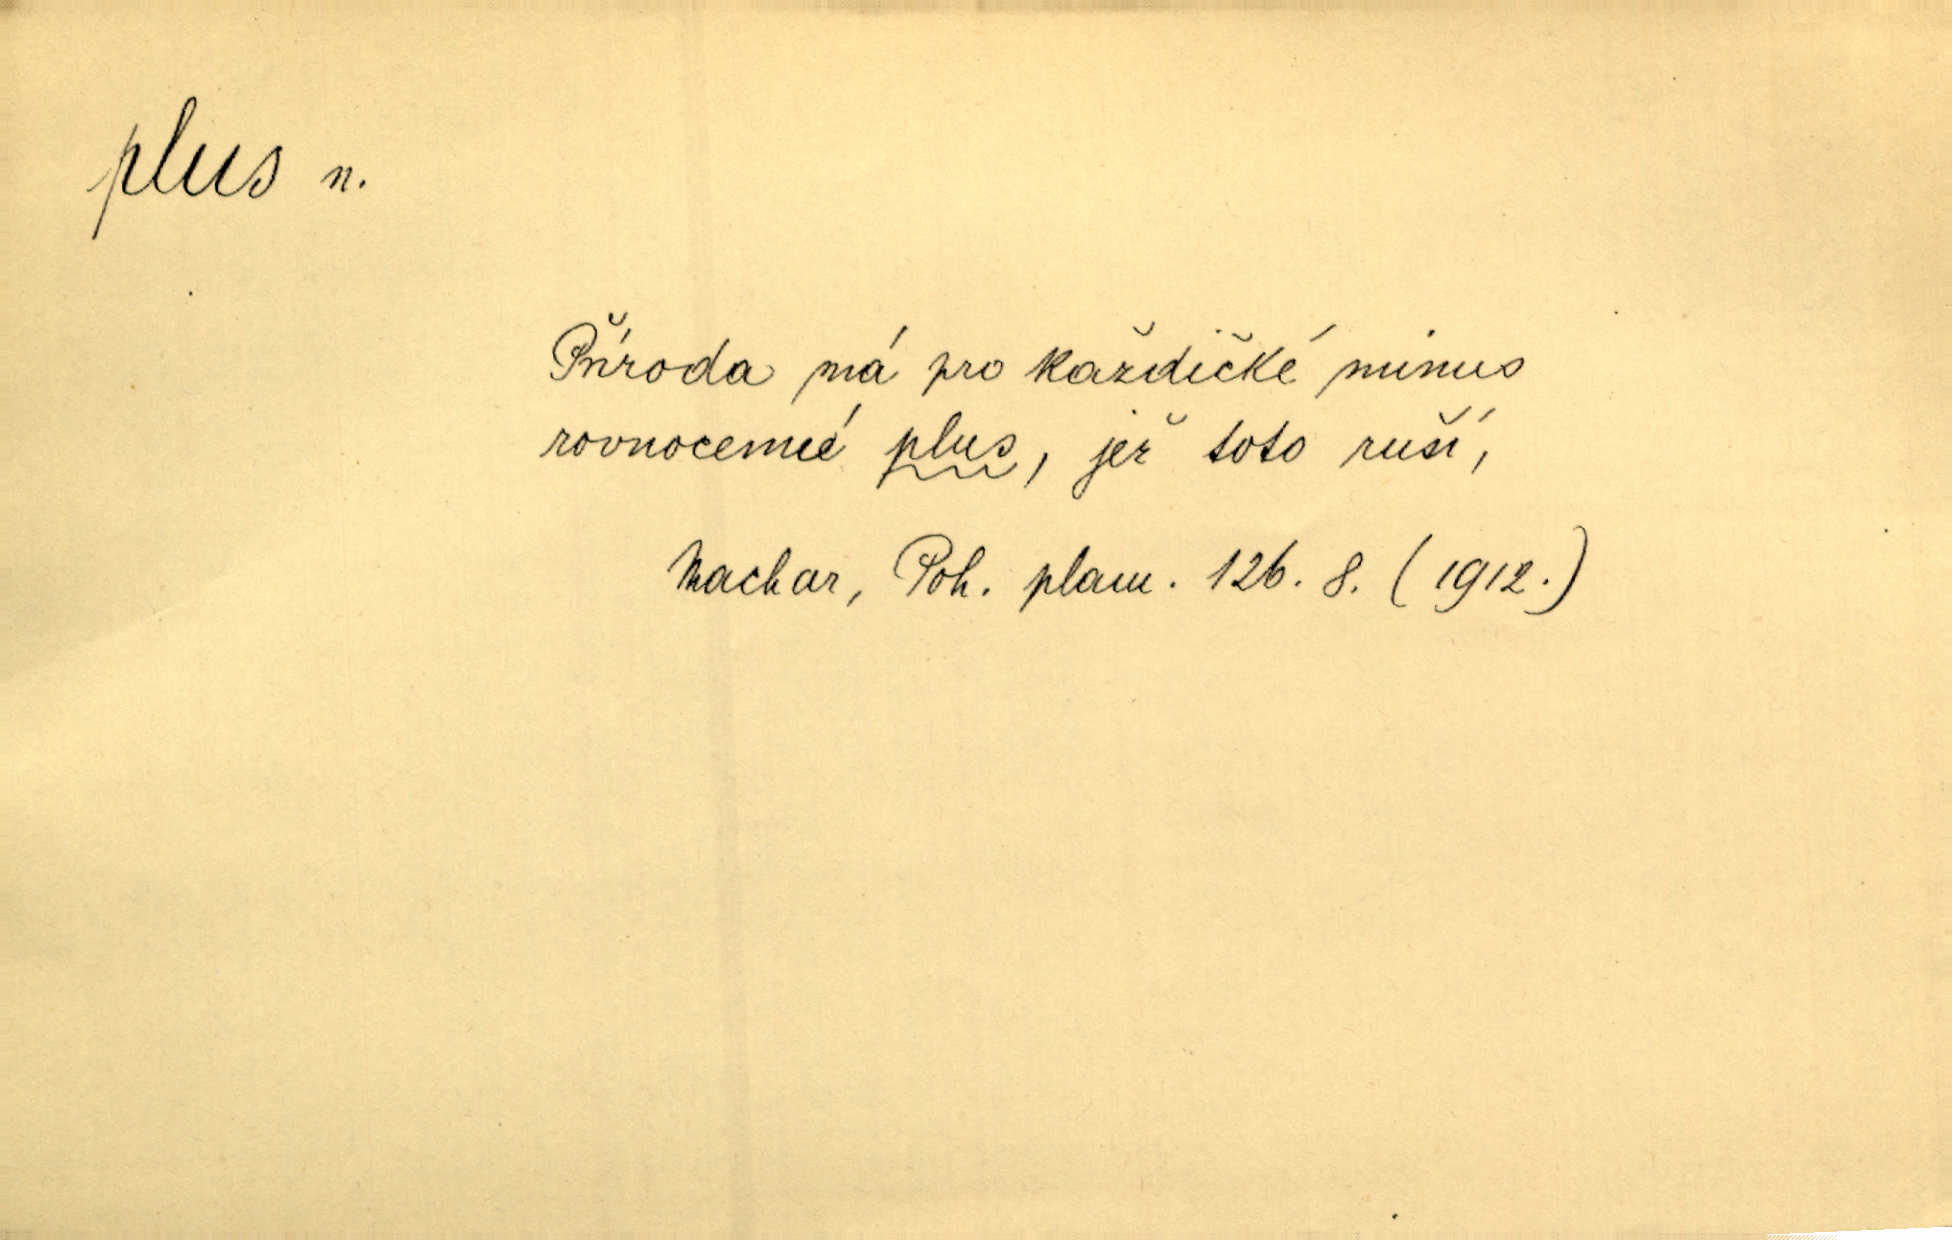 plus n.
Příroda má pro každičké minus
rovnocenné plus, jež toto ruší,
Machar, Poh. plam. 126. 8. (1912.)